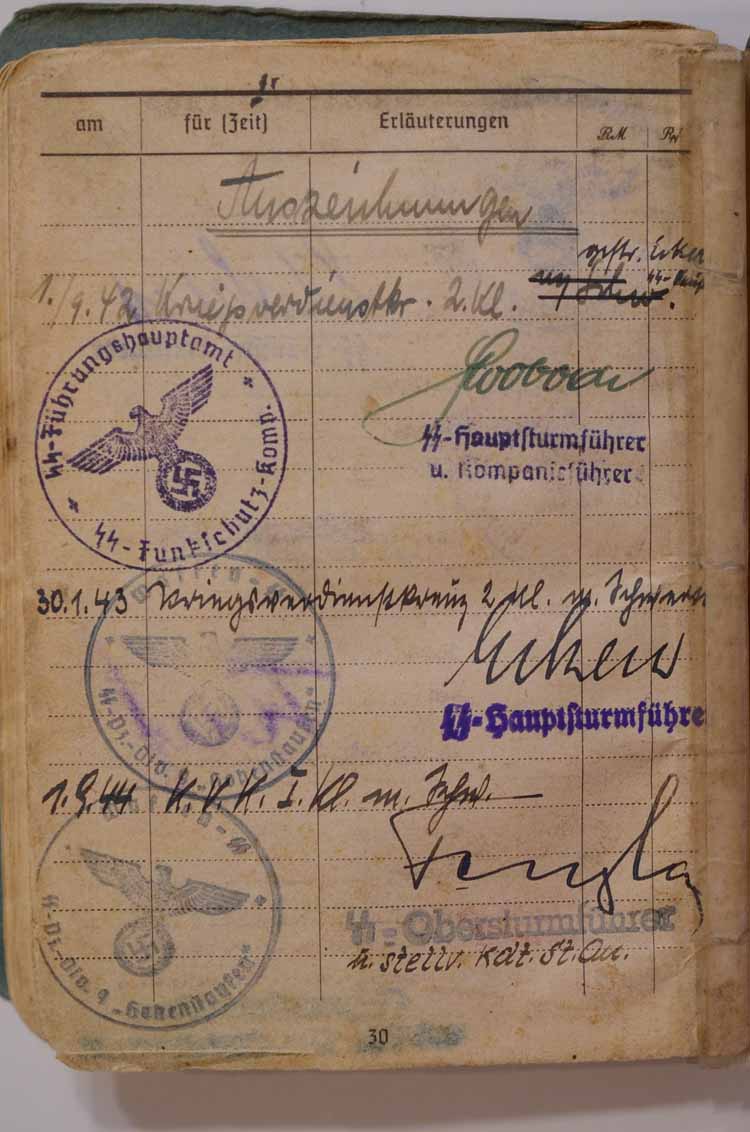 am für (Zeit) Erläuterungen RM Rpf
Auszeichnungen
gestr.
1./9.42 Kriegsverdienstkr. 2. Kl.
SS-Führungshauptamt
SS-Funkschutz-Komp.
SS-Hauptsturmführer
u. Kompanieführer
30.1.43 Kriegsverdienstkreuz 2 Kl. m. Schwert
SS-Hauptsturmführe
SS-Pz.-Div. 9 „Hohenstaufen"
1.9.44 K.V.K. I. Kl. m. Schw.
Waffen-SS
SS-Pz.-Div. 9 „Hohenstaufen"
SS-Obersturmführer
u. stellv. Kdt. St. Qu.
30